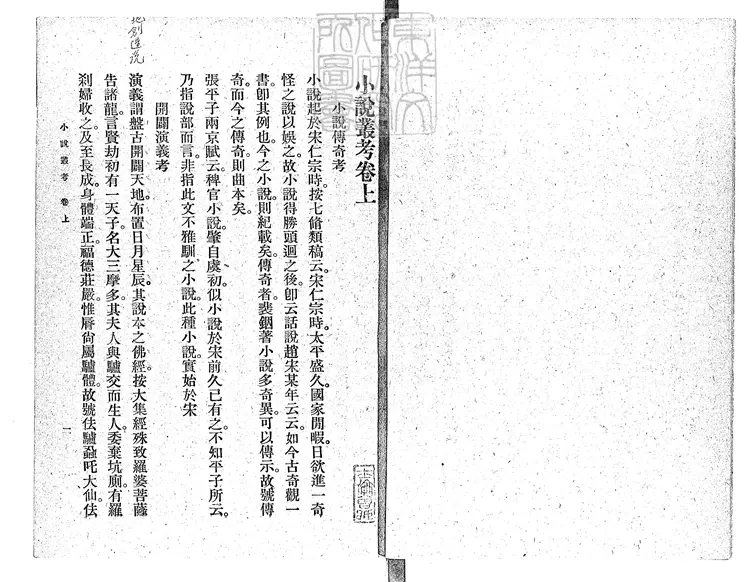 小說叢考卷上
小說傳奇考
小說起於宋仁宗時。按七脩類稿云。宋仁宗時。太平盛久。國家閒暇。日欲進一奇
怪之說以娛之。故小說得勝頭迴之後。卽云話說趙宋某年云云。如今古奇觀一
書。卽其例也。今之小說。則紀載矣。傳奇者。裴鉶著小說多奇異。可以傳示。故號傳
奇。而今之傳奇。則曲本矣。
張平子兩京賦云。稗官小說。肇自虞初。似小說於宋前久已有之。不知平子所云。
乃指說部而言。非指此文不雅馴之小說。此種小說。實始於宋
開闢演義考
演義謂盤古開闢天地。布置日月星辰。其說本之佛經。按大集經殊致羅婆菩薩
告諸龍。言賢劫初有一天子。名大三摩多。其夫人與驢交而生人。委棄坑廁。有羅
刹婦收之。及至長成。身體端正。福德莊嚴。惟脣尙屬驢體。故號佉驢蝨吒大仙。佉
小說叢考 卷上
一